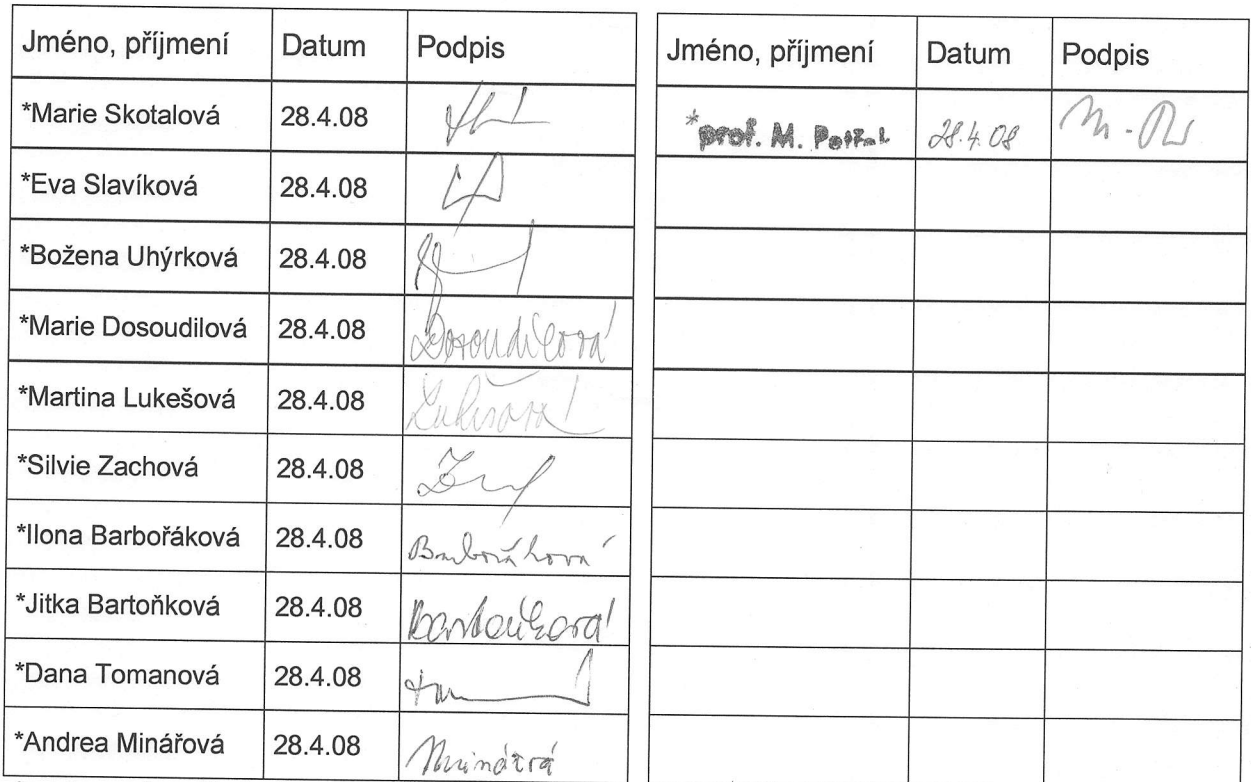 Jméno, příjmení Datum Podpis
*Marie Skotalová 28.4.08
*Eva Slavíková 28.4.08
*Božena Uhýrková 28.4.08
*Marie Dosoudilová 28.4.08 Dosoudilová
*Martina Lukešová 28.4.08 Lukešová
*Silvie Zachová 28.4.08
*Ilona Barbořáková 28.4.08 Barbořáková
*Jitka Bartoňková 28.4.08 Bartoňková
*Dana Tomanová 28.4.08
*Andrea Minářová 28.4.08 Minářová
Jméno, příjmení Datum Podpis
*prof. M. 28.4.08